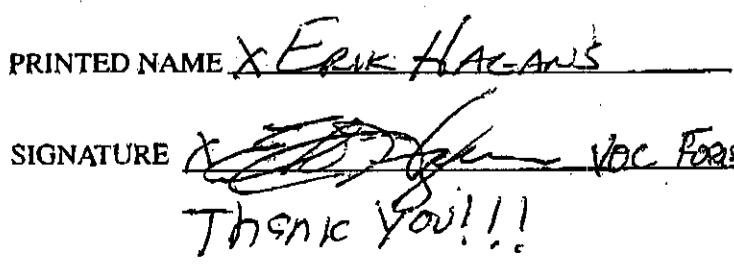 PRINTED NAME X ERIK HAGANS
SIGNATURE X VOC
Thank You!!!